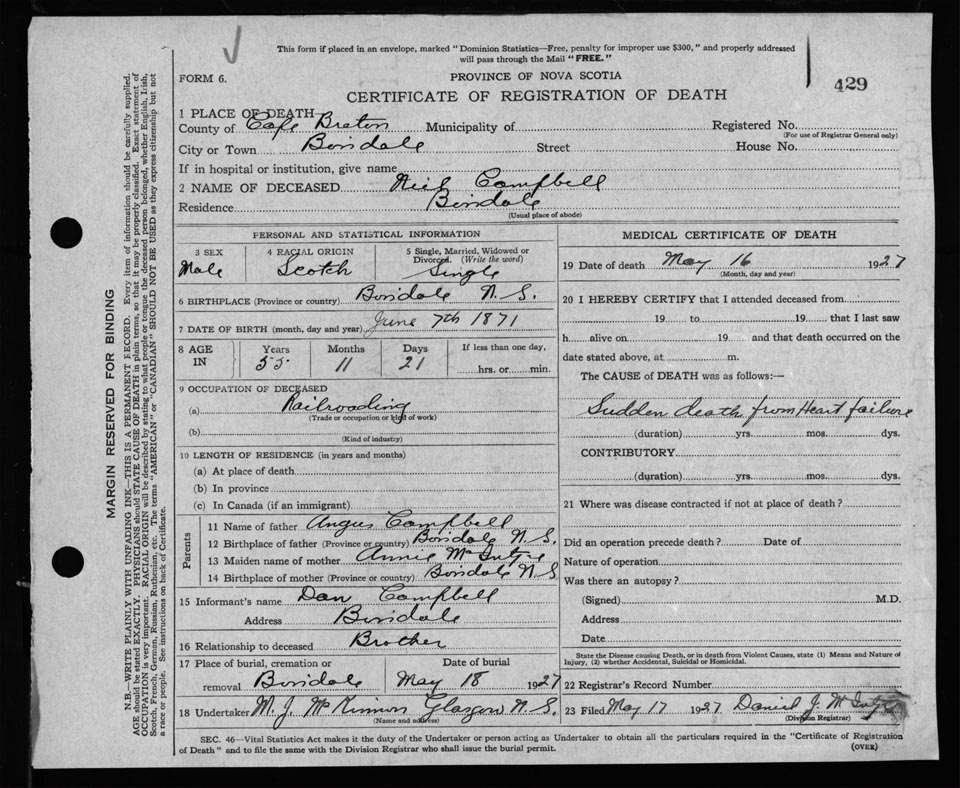 This form if placed in an envelope, marked "Dominion Statistics—Free, penalty for improper use $300," and properly addressed
will pass through the Mail "FREE."
FORM 6.
PROVINCE OF NOVA SCOTIA
429
CERTIFICATE OF REGISTRATION OF DEATH
1 PLACE OF DEATH
County of Cape Breton Municipality of Registered No.
(For use of Registrar General only)
City or Town Boisdale Street House No.
If in hospital or institution, give name
2 NAME OF DECEASED Neil Campbell
Residence Boisdale
(Usual place of abode)
PERSONAL AND STATISTICAL INFORMATION
3 SEX 4 RACIAL ORIGIN 5 Single, Married, Widowed or
Divorced. (Write the word)
Male Scotch Single
6 BIRTHPLACE (Province or country) Boisdale N.S.
7 DATE OF BIRTH (month, day and year) June 7th 1871
8 AGE IN Years Months Days If less than one day,
55 11 21 hrs. or min.
9 OCCUPATION OF DECEASED
(a) Railroading
(Trade or occupation or kind of work)
(b)
(Kind of industry)
10 LENGTH OF RESIDENCE (in years and months)
(a) At place of death
(b) In province
(c) In Canada (if an immigrant)
Parents
11 Name of father Angus Campbell
12 Birthplace of father (Province or country) Boisdale N.S.
13 Maiden name of mother Annie McIntyre
14 Birthplace of mother (Province or country) Boisdale N.S
15 Informant's name Dan Campbell
Address Boisdale
16 Relationship to deceased Brother
17 Place of burial, cremation or Date of burial
removal Boisdale May 18 1927
18 Undertaker M. J. McKinnon Glasgow N.S.
(Name and address)
MEDICAL CERTIFICATE OF DEATH
19 Date of death May 16 1927
(Month, day and year)
20 I HEREBY CERTIFY that I attended deceased from
19 to 19 that I last saw
h alive on 19 and that death occurred on the
date stated above, at m.
The CAUSE of DEATH was as follows:—
Sudden death from Heart failure
(duration) yrs. mos. dys.
CONTRIBUTORY
(duration) yrs. mos. dys.
21 Where was disease contracted if not at place of death?
Did an operation precede death? Date of
Nature of operation
Was there an autopsy?
(Signed) M.D.
Address
Date
State the Disease causing Death, or in death from Violent Causes, state (1) Means and Nature of
Injury, (2) whether Accidental, Suicidal or Homicidal.
22 Registrar's Record Number
23 Filed May 17 1927 Daniel J. McIntyre
(Division Registrar)
SEC. 46—Vital Statistics Act makes it the duty of the Undertaker or person acting as Undertaker to obtain all the particulars required in the "Certificate of Registration
of Death" and to file the same with the Division Registrar who shall issue the burial permit.
(OVER)
MARGIN RESERVED FOR BINDING
N.B.—WRITE PLAINLY WITH UNFADING INK—THIS IS A PERMANENT RECORD. Every item of information should be carefully supplied.
AGE should be stated EXACTLY. PHYSICIANS should STATE CAUSE OF DEATH in plain terms, so that it may be properly classified. Exact statement of
OCCUPATION is very important. RACIAL ORIGIN will be described by stating to what people or tongue the deceased person belonged, whether English, Irish,
Scotch, French, German, Russian, Ruthenian, etc. The terms "AMERICAN" or "CANADIAN" SHOULD NOT BE USED as they express citizenship but not
a race or people. See instructions on back of Certificate.